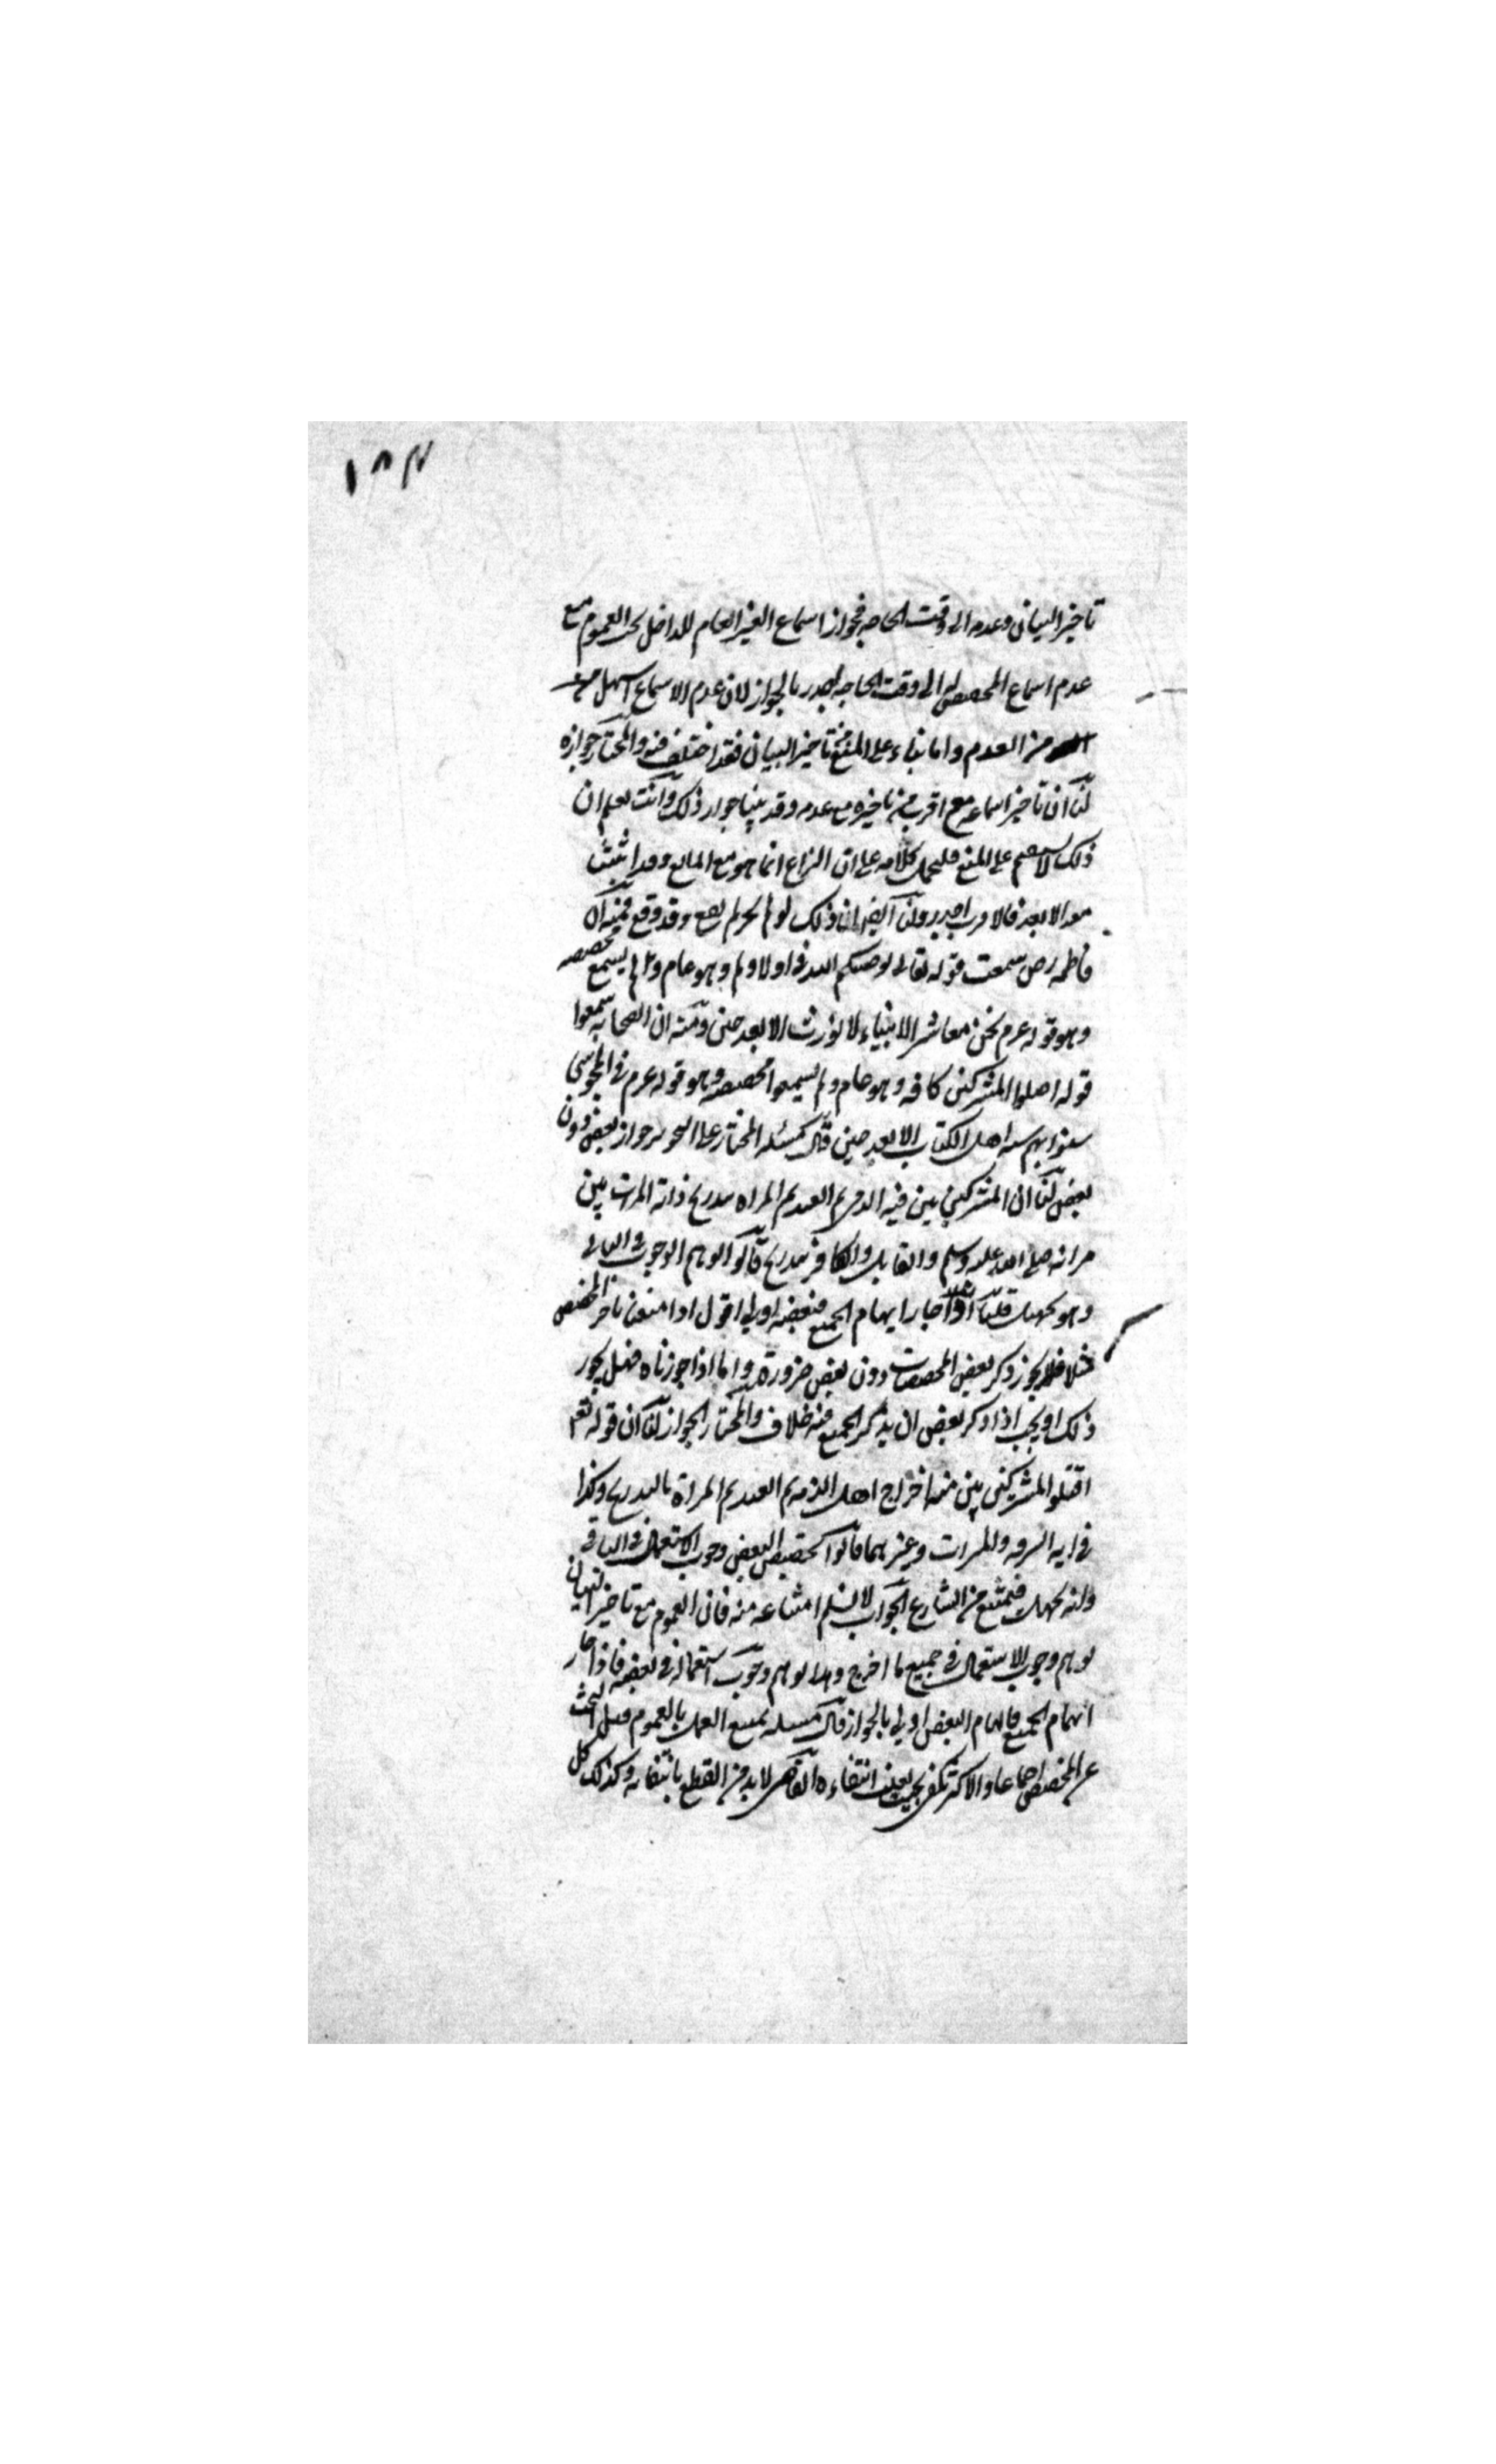 ١٨٣
تاخير البيان وعدمه الى وقت الحاجه فجواز اسماع الغير العام للداخل تحت العموم مع
عدم اسماع المخصص له الى وقت الحاجه اجدر بالجواز لان عدم الاسماع اسهل من
من العدم واما بناء على المنع من تاخير البيان فقد اختلف فيه والمختار جوازه
لنا ان تاخير اسماعه مع اقرب من تاخيره مع عدمه وقد بينا جواز ذلك وانت تعلم ان
ذلك لا يستقيم على المنع فليحمل كلامه على ان النزاع انما هو مع المانع وقد اثبتنا
معه الابعد فالاقرب اجدر ولنا ايضا ان ذلك لو لم يجز لم يقع وقد وقع فمنه ان
فاطمه رض سمعت قوله تعالى يوصيكم الله في اولادكم وهو عام ولم يسمع مخصصه
وهو قوله عم نحن معاشر الانبياء لا نورث الا بعد حين ومنه ان الصحابه سمعوا
قوله اقتلوا المشركين كافه وهو عام ولم يسمعوا مخصصه وهو قوله عم في المجوسي
سنوا بهم سنه اهل الكتاب الا بعد حين قال مسئله المختار على التجويز جواز بعض دون
بعض لنا ان المشركين بين فيه الذمي ثم العبد ثم المراه بتدريج وايه الميراث بين
صلى الله عليه وسلم والقاتل والكافر بتدريج قالوا يوهم الوجوب في الباقي
وهو تجهيل قلنا اذا جاز ايهام الجميع فبعضه اولى اقول اذا امتنع تاخر المخصص
فلا يجوز ذكر بعض المخصصات دون بعض ضرورة واما اذا جوزناه فهل يجوز
ذلك او يجب اذا ذكر بعض ان يذكر الجميع فيه خلاف والمختار الجواز لنا ان قوله تعم
اقتلوا المشركين بين منه اخراج اهل الذمه ثم العبد ثم المراة بالتدريج وكذا
في ايه السرقه والميراث وغيرهما قالوا تخصيص البعض وجوب الاستعمال في الباقي
وانه تجهيل فيمتنع من الشارع الجواب لا نسلم امتناعه منه فان العموم مع تاخير البيان
يوهم وجوب الاستعمال في جميع ما اخرج وهذا يوهم وجوب استعماله في بعضه فاذا جاز
ايهام الجميع فايهام البعض اولى بالجواز قال مسئله يمتنع العمل بالعموم قبل البحث
عن المخصص اجماعا والاكثر يكفي بحيث يغلب انتفاءه القاضي لا بد من القطع بانتفائه وكذلك كل